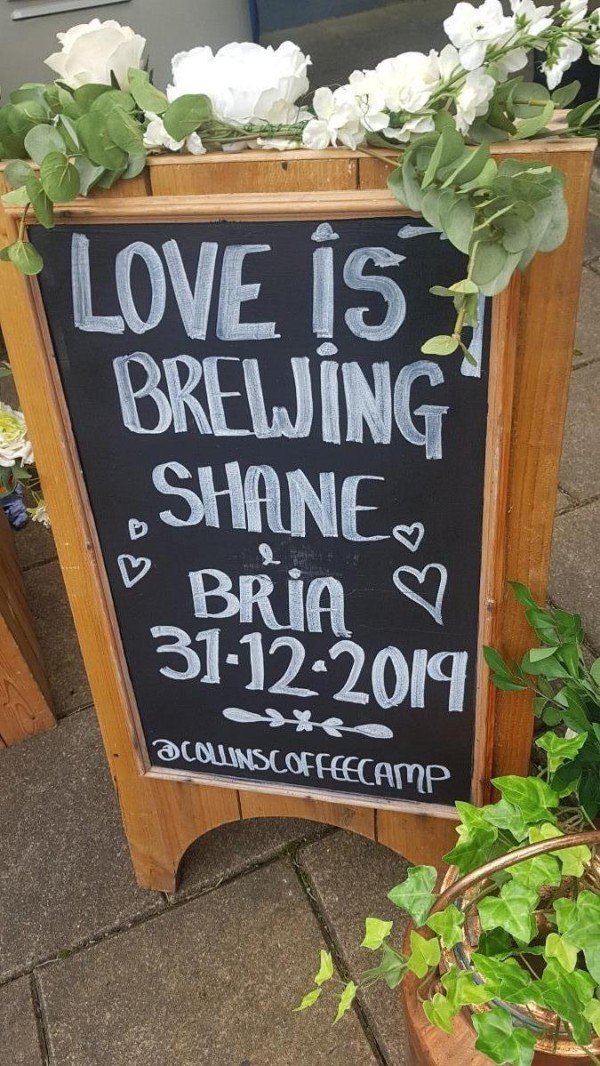 LOVE iS
BREWiNG
SHANE
&
BRiA
31·12·2019
@COLLINSCOFFEECAMP